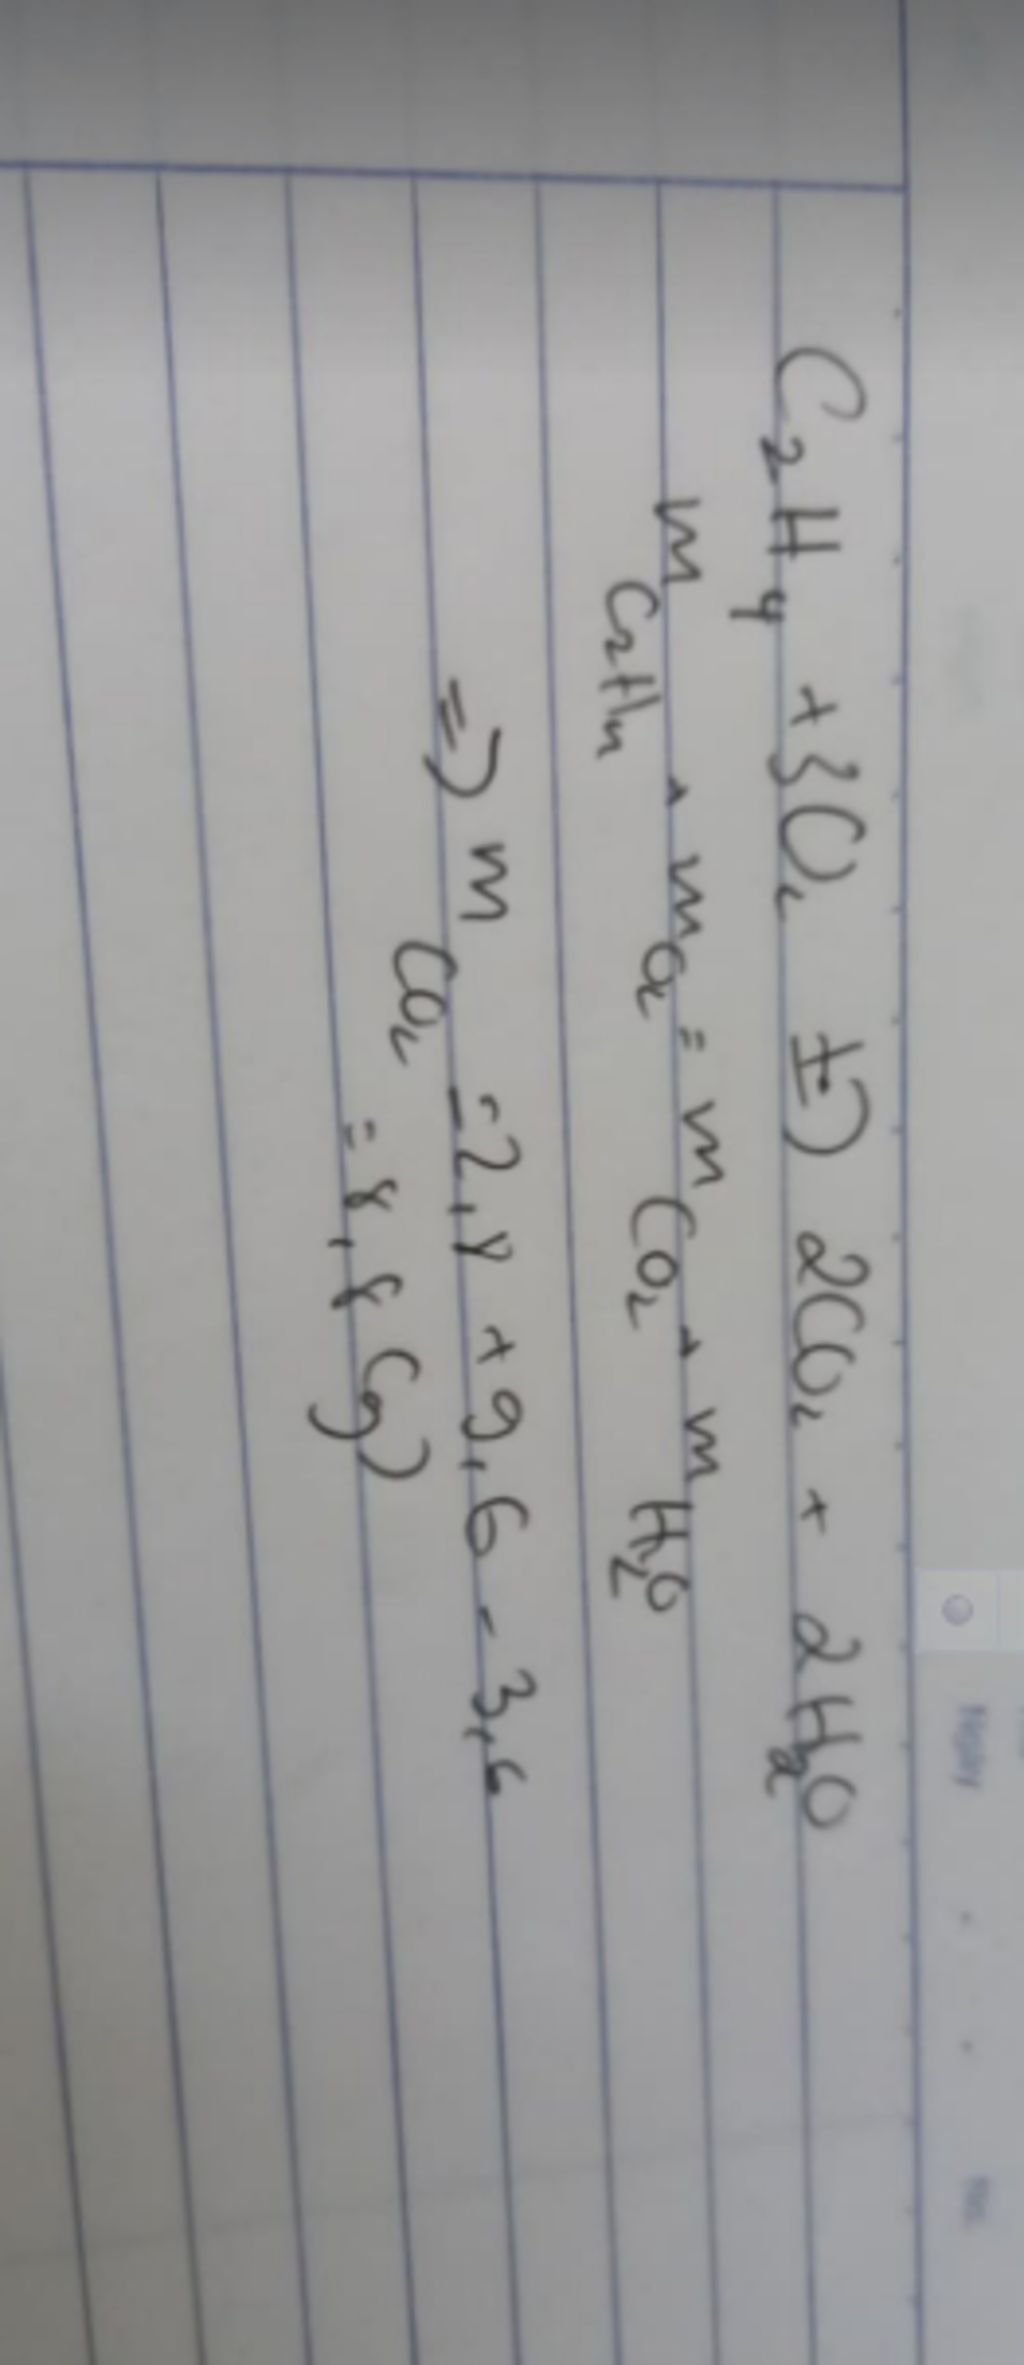 C₂H₄ + 3O₂ t°→ 2CO₂ + 2H₂O
m C₂H₄ + m O₂ = m CO₂ + m H₂O
=> m CO₂ = 2,8 + 9,6 - 3,6
= 8,8 (g)